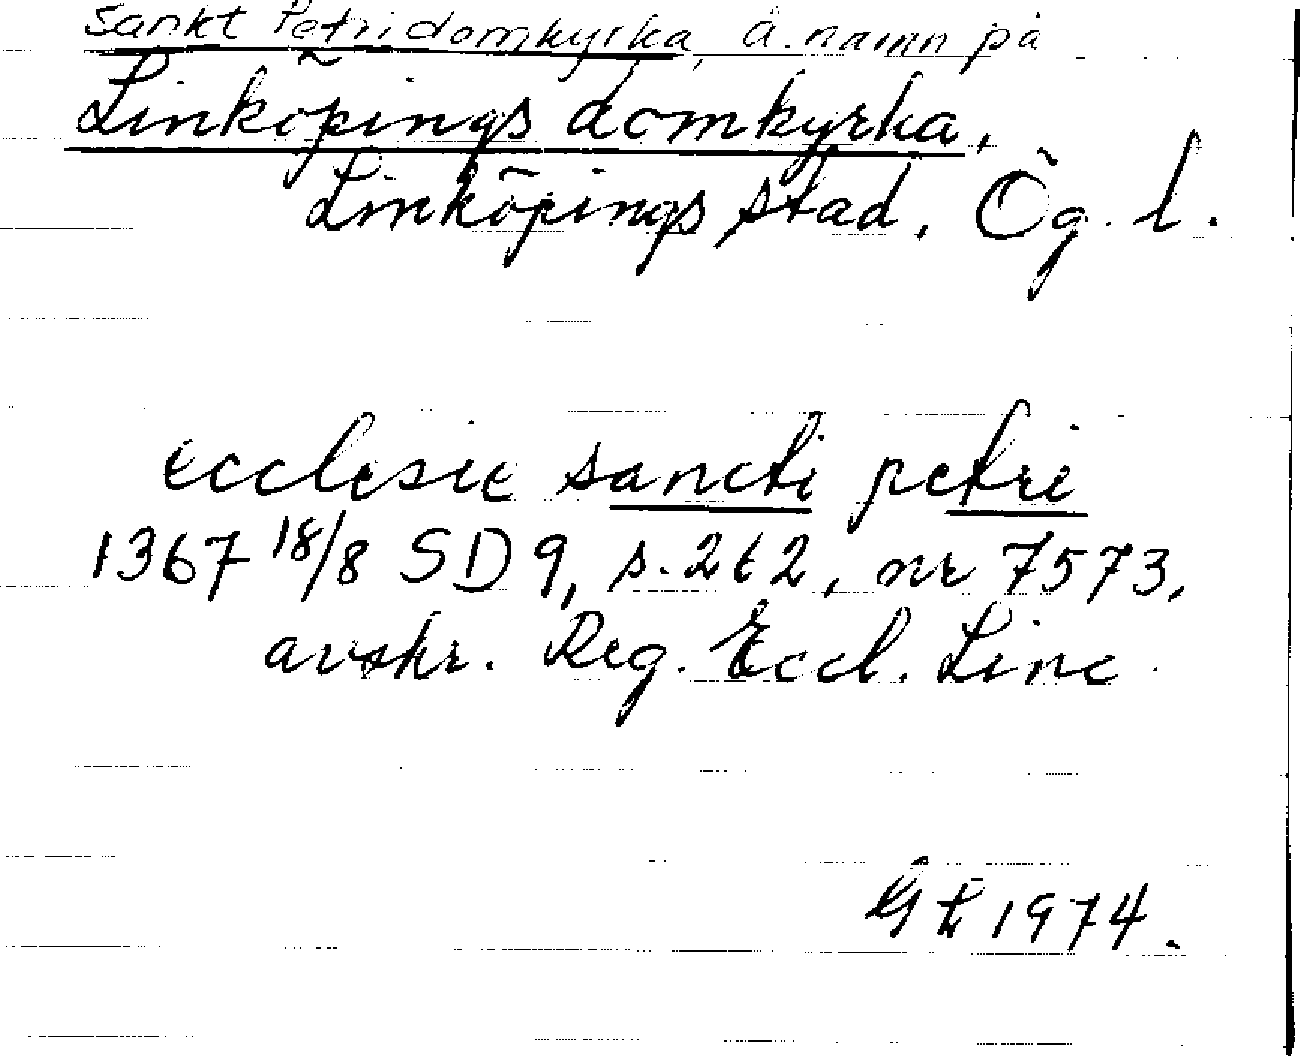 Sankt Petri domkyrka, ä. namn på
Linköpings domkyrka,
Linköpings stad, Ög. l.
ecclesie sancti petri
1367 18/8 SD 9, s. 262, nr 7573,
avskr. Reg. Eccl. Linc.
1974.